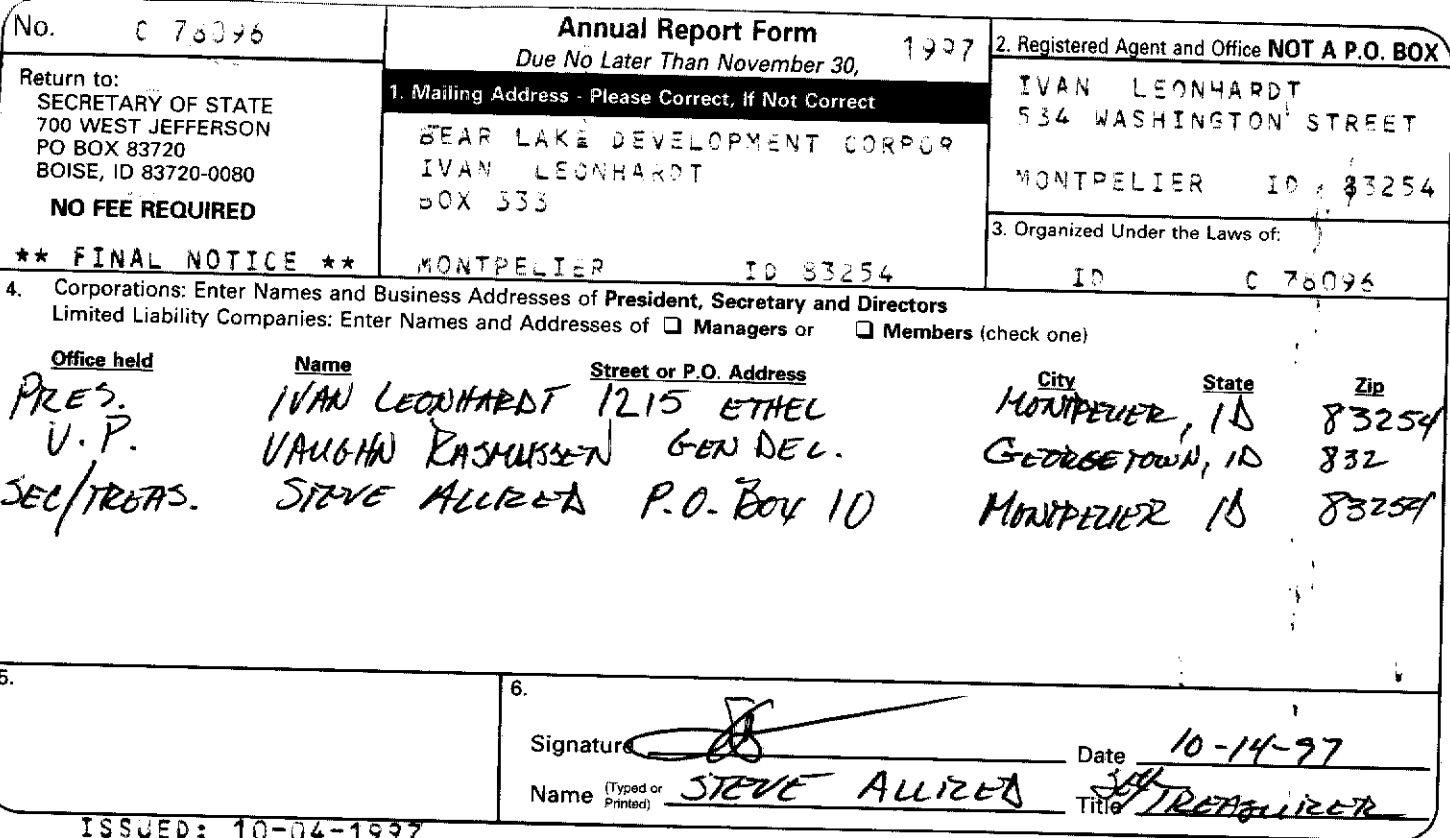 No. C 76096
Annual Report Form
Due No Later Than November 30, 1997
Return to:
SECRETARY OF STATE
700 WEST JEFFERSON
PO BOX 83720
BOISE, ID 83720-0080
NO FEE REQUIRED
** FINAL NOTICE **
1. Mailing Address - Please Correct, If Not Correct
BEAR LAKE DEVELOPMENT CORPOR
IVAN LEONHARDT
BOX 333
MONTPELIER ID 83254
2. Registered Agent and Office NOT A P.O. BOX
IVAN LEONHARDT
534 WASHINGTON STREET
MONTPELIER ID 83254
3. Organized Under the Laws of:
ID C 76096
4. Corporations: Enter Names and Business Addresses of President, Secretary and Directors
Limited Liability Companies: Enter Names and Addresses of ❑ Managers or ❑ Members (check one)
Office held Name Street or P.O. Address City State Zip
PRES. IVAN LEONHARDT 1215 ETHEL MONTPELIER, ID 83254
V.P. VAUGHN RASMUSSEN GEN DEL. GEORGETOWN, ID 832
SEC/TREAS. STEVE ALLRED P.O. BOX 10 MONTPELIER ID 83254
5.
6.
Signature Date 10-14-97
Name (Typed or Printed) STEVE ALLRED Title SEC/TREASURER
ISSUED: 10-04-1997